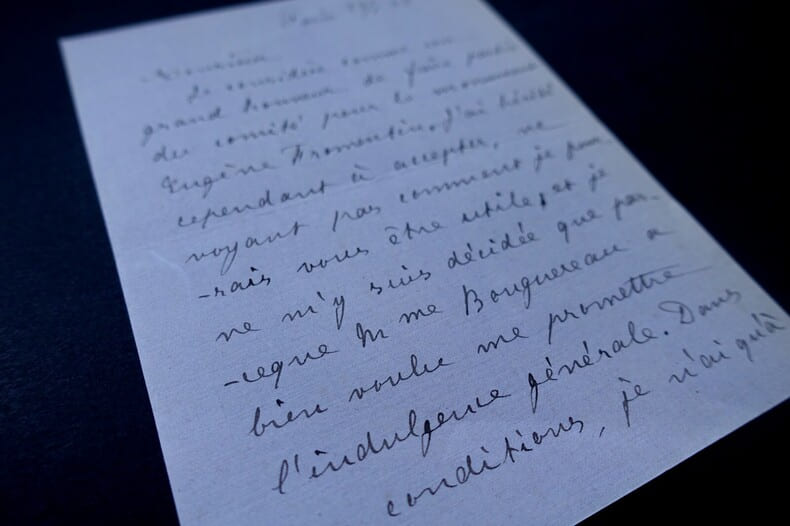 Monsieur
Je considère comme un
grand honneur de faire partie
du comité pour le monument
Eugène Fromentin. J'ai hésité
cependant à accepter, ne
voyant pas comment je pour
-rais vous être utile, et je
ne m'y suis décidée que par-
-ceque Mme Bouguereau a
bien voulu me promettre
l'indulgence générale. Dans
conditions, je n'ai qu'à